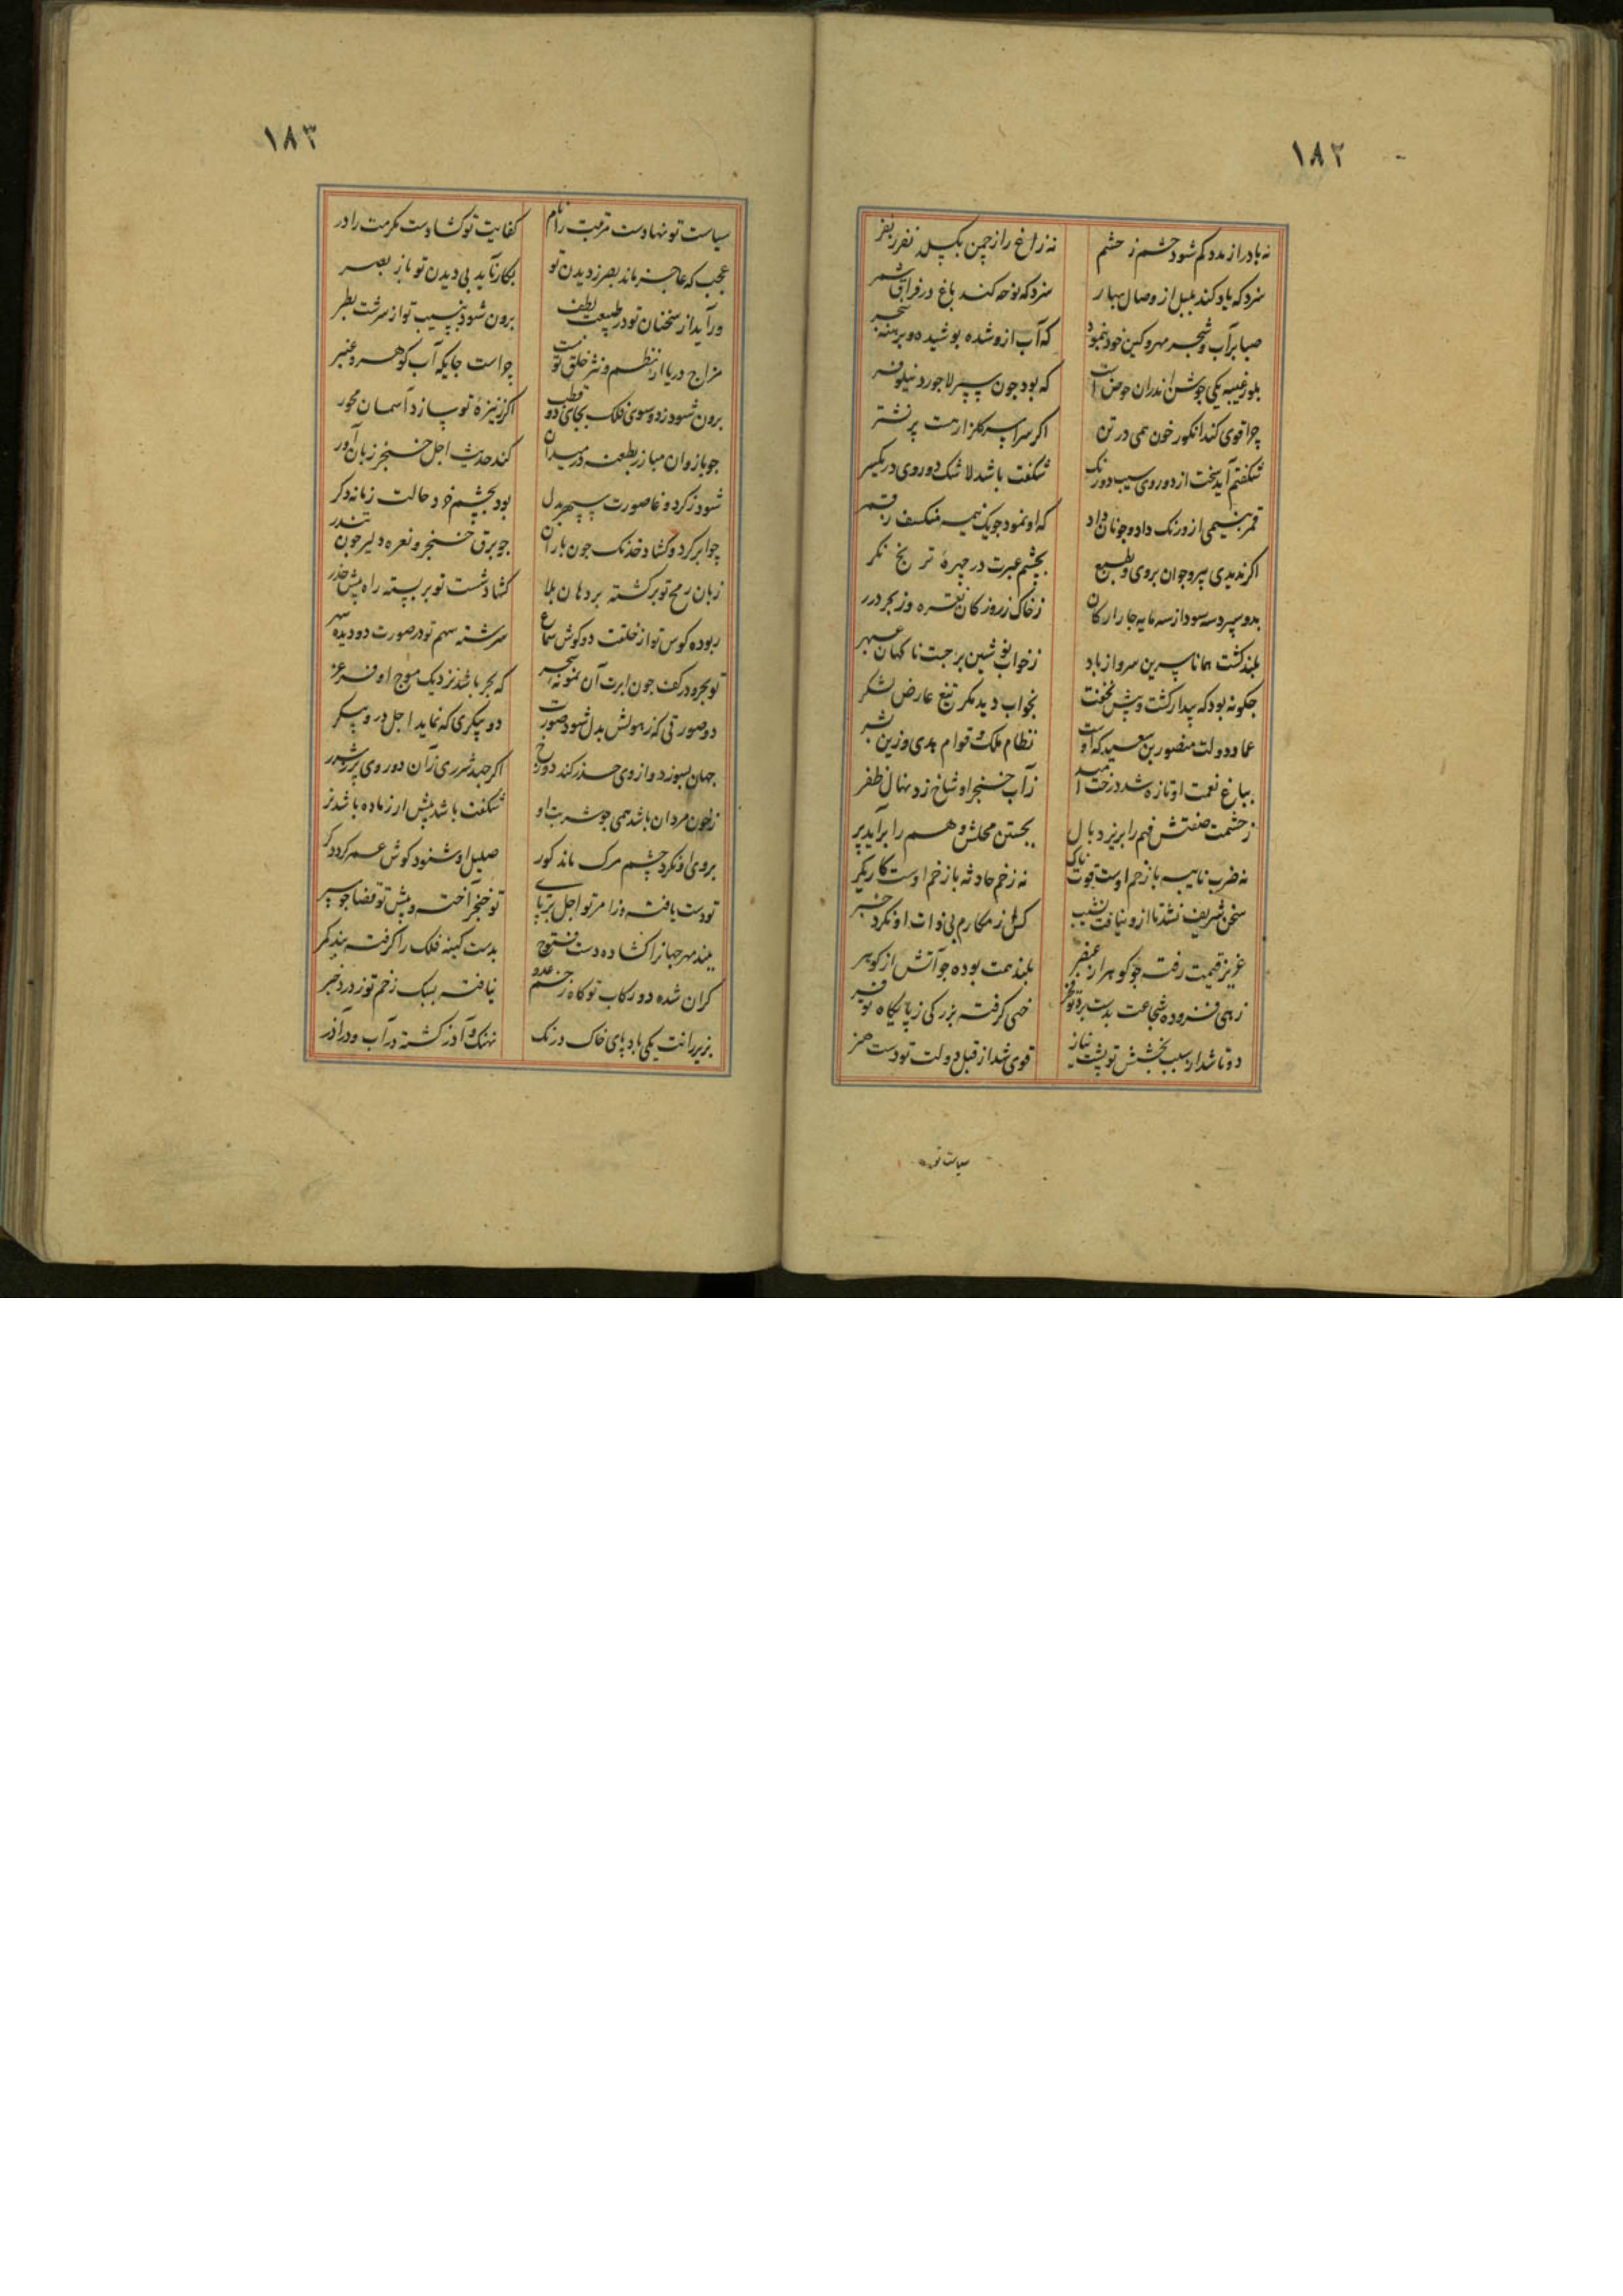 ۱۸۲
نه باد را ز مدد کم شود حشم ز حشم نه زاغ را ز چمن بگسلد نفر ز نفر
سزد که یاد کند بلبل از وصال بهار سزد که نوحه کند باغ در فراق شمر
صبا بر آب و شجر مهر و کین خود بنمود که آب ازو شده پوشیده و برهنه شجر
بلور غیبه یکی جوشن اندران حوض است که بود چون سپر لاجورد نیلوفر
چرا قوی کند انکور خون همی در تن اکر سراسر کلزار هست پر نشتر
شکفتم آید سخت از دوروی سیب دورنک شکفت باشد لا شک دوروی در یکسر
قمر به نیمی ازو رنک داد و چونان داد که او نمود چو یک نیمه منکسف ز قمر
اکر ندیدی پیر و جوان بروی و بطبع بچشم عبرت در چهرۀ ترنج نکر
بدو سپرد سه سود از سه مایه چار ارکان ز خاک زر و ز کان نقره وز بحر درر
بلند کشت همانا سرین سرو از باد ز خواب نوشین برجست ناکهان عبهر
چکونه بود که بیدار کشت و پیش نخفت بخواب دید مکر تیغ عارض لشکر
عماد دولت منصور بن سعید که اوست نظام ملک و قوام هدی و زین بشر
بباغ نعمت او تازه شد درخت امید ز آب خنجر او شاخ زد نهال ظفر
ز حشمت صفتش فهم را بریزد بال بجستن محلش وهم را برآید پر
نه ضرب نایبه با زخم اوست قوت ناک نه زخم حادثه با زخم اوست کاریکر
سخن شریف نشد تا ازو نیافت نشیب کس از مکارم بی ذات او نکرد خبر
عزیز قیمت رفته چو کوهر از عنصر بلند همت بوده چو آتش از کوهر
زهی فزوده شجاعت بدست برد تو فخر خهی کرفته بزرکی ز پایکاه تو فر
دوتا شد از سبب بخشش تو پشت نیاز قوی شد از قبل دولت تو دست هنر
سیاست تو
۱۸۳
سیاست تو نهادست مرتبت را نام کفایت تو کشادست مکرمت را در
عجب که عاجز ماند بصر ز دیدن تو بکار ناید بی دیدن تو باز بصر
درآید از سخنان تو در طبیعت لطف برون شود بنسیب تو از سرشت بطر
مزاج دریا از نظم و نثر خلق تو نیست چراست جایکه آب کوهر و عنبر
برون شود ز دو سوی فلک بجای دو قطب اکر ز نیزۀ تو سازد آسمان محور
چو بازوان مبارز بطعنه در میدان کند حدیث اجل خنجر زبان آور
شود ز کرد وغا صورت سپهر بدل بود بچشم خرد حالت زمانه دکر
چو ابر کرد و کشاد خدنک چون باران چو برق خنجر و نعره دلیر چون تندر
زبان رمح تو برکشته بر دهان بلا کشاد شست تو بربسته راه پیش حذر
ربوده کوس تو از خلقت دو کوش سماع سرشته سهم تو در صورت دو دیده سهر
تو بحر و در کف چون ابرت آن نمونۀ بحر که بحر باشد نزدیک موج او فرغر
دو صورتی که ز هولش بدل شود صورت دو پیکری که نماید اجل در و پیکر
جهان بسوزد و از وی حذر کند دوزخ اکر جهد شرری زآن دو روی پر ز شرر
ز خون مردان باشد همی چو شربت او شکفت باشد بیش ار ز ماده باشد نر
بروی او نکرد چشم مرک ماند کور صلیل او شنود کوش عمر کردد کر
تو دست یافته و ز امر تو اجل بر پای تو خنجر آخته و پیش تو قضا چو سپر
بلند مهر جهانرا کشاده دست فتوح بدست کینه فلک را کرفته بند کمر
کران شده دو رکاب تو کاه زخم عدو نیافته سبک زخم تو ز درد خبر
بزیر رانت یکی باد پای خاک درنک نهنک و آذر کشته در آب و در آذر